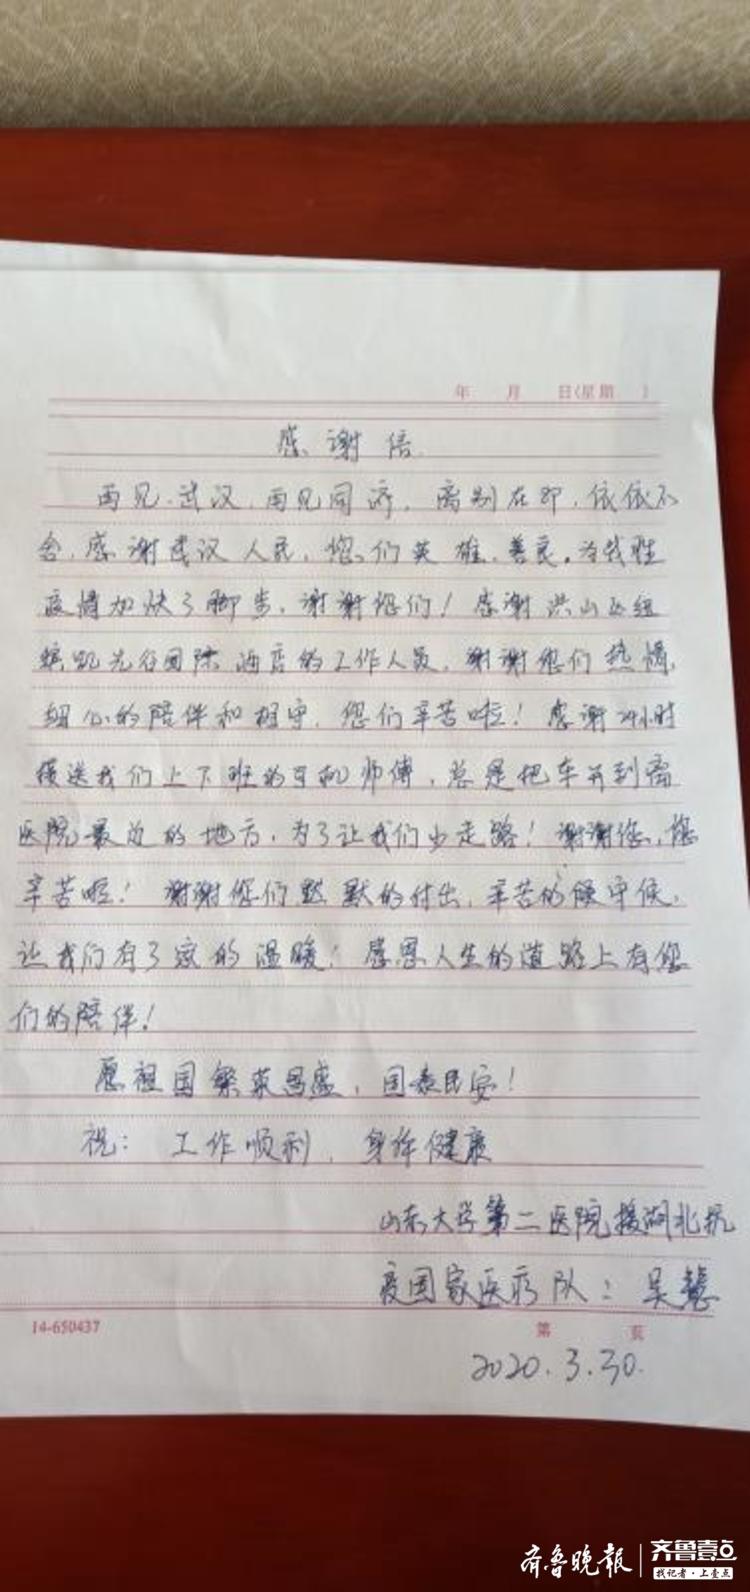 年 月 日(星期 )
感谢信
再见,武汉,再见同济,离别在即,依依不
舍,感谢武汉人民,您们英雄、善良。为战胜
疫情加快了脚步,谢谢您们!感谢洪山区
凯光谷国际酒店的工作人员,谢谢您们热情,
细心的陪伴和相守,您们辛苦啦!感谢24小时
接送我们上下班的司机师傅,总是把车开到离
医院最近的地方,为了让我们少走路!谢谢您,您
辛苦啦!谢谢您们默默的付出,辛苦的守候,
让我们有了家的温暖!感恩人生的道路上有您
们的陪伴!
愿祖国繁荣昌盛,国泰民安!
祝:工作顺利,身体健康
山东大学第二医院援湖北抗
疫国家医疗队:吴慧
14-650437 第 页
2020.3.30.
齐鲁晚报 齐鲁壹点
找记者·上壹点